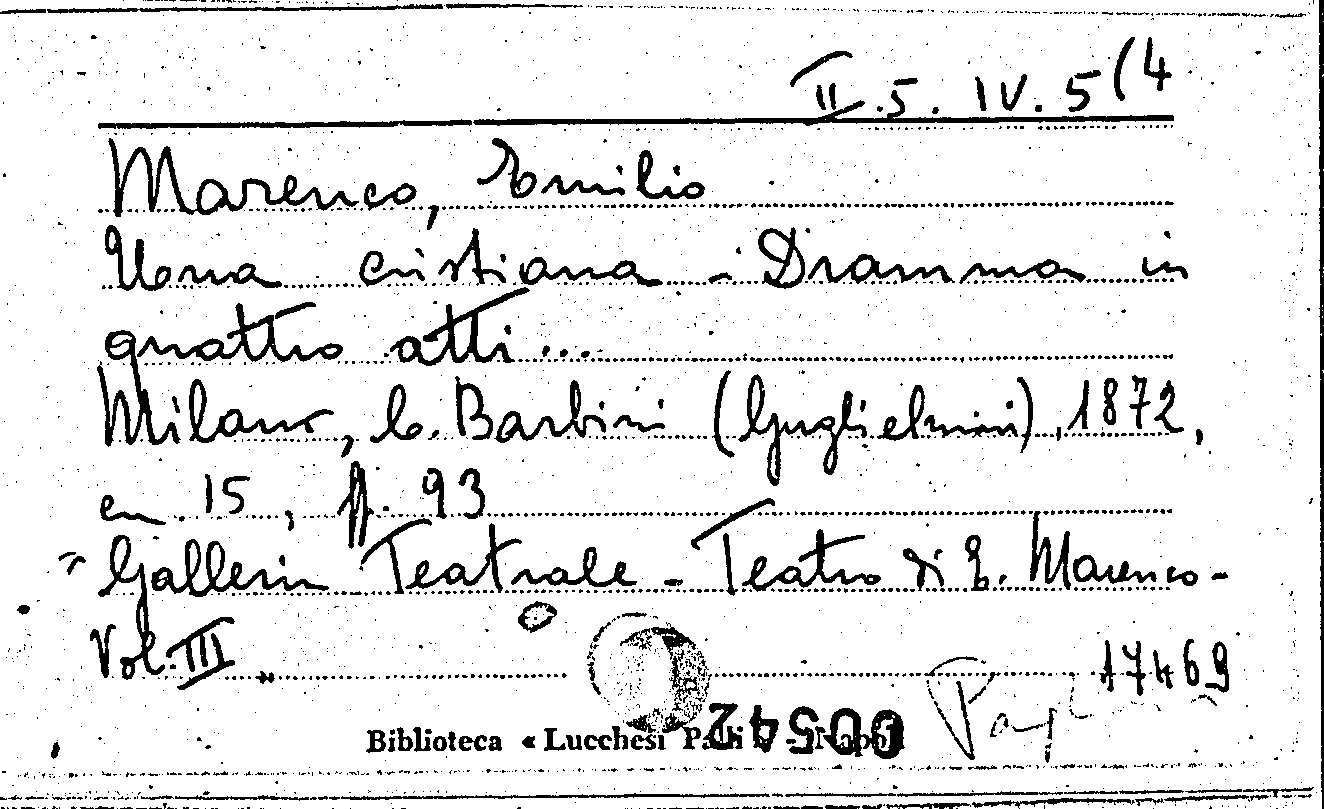 II.5.IV.5(4
Marenco, Emilio
Una cristiana - Dramma in
quattro atti...
Milano, C. Barbini (Guglielmini), 1872,
cm. 15, pp. 93
"Galleria Teatrale - Teatro di E. Marenco-
Vol. III"
17469
00542
Biblioteca « Lucchesi Palli » - Napoli